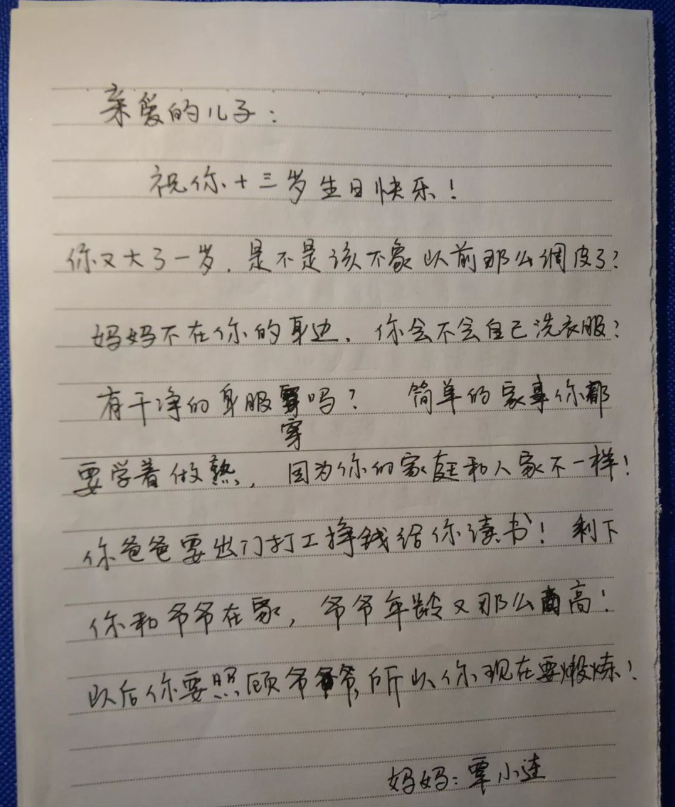 亲爱的儿子：
祝你十三岁生日快乐！
你又大了一岁．是不是该不象以前那么调皮了？
妈妈不在你的身边．你会不会自己洗衣服？
有干净的身服穿吗？ 简单的家事你都
要学着做熟，因为你的家庭和人家不一样！
你爸爸要出门打工挣钱给你读书！剩下
你和爷爷在家，爷爷年龄又那么高！
以后你要照顾爷爷，所以你现在要煅炼！
妈妈：覃小连